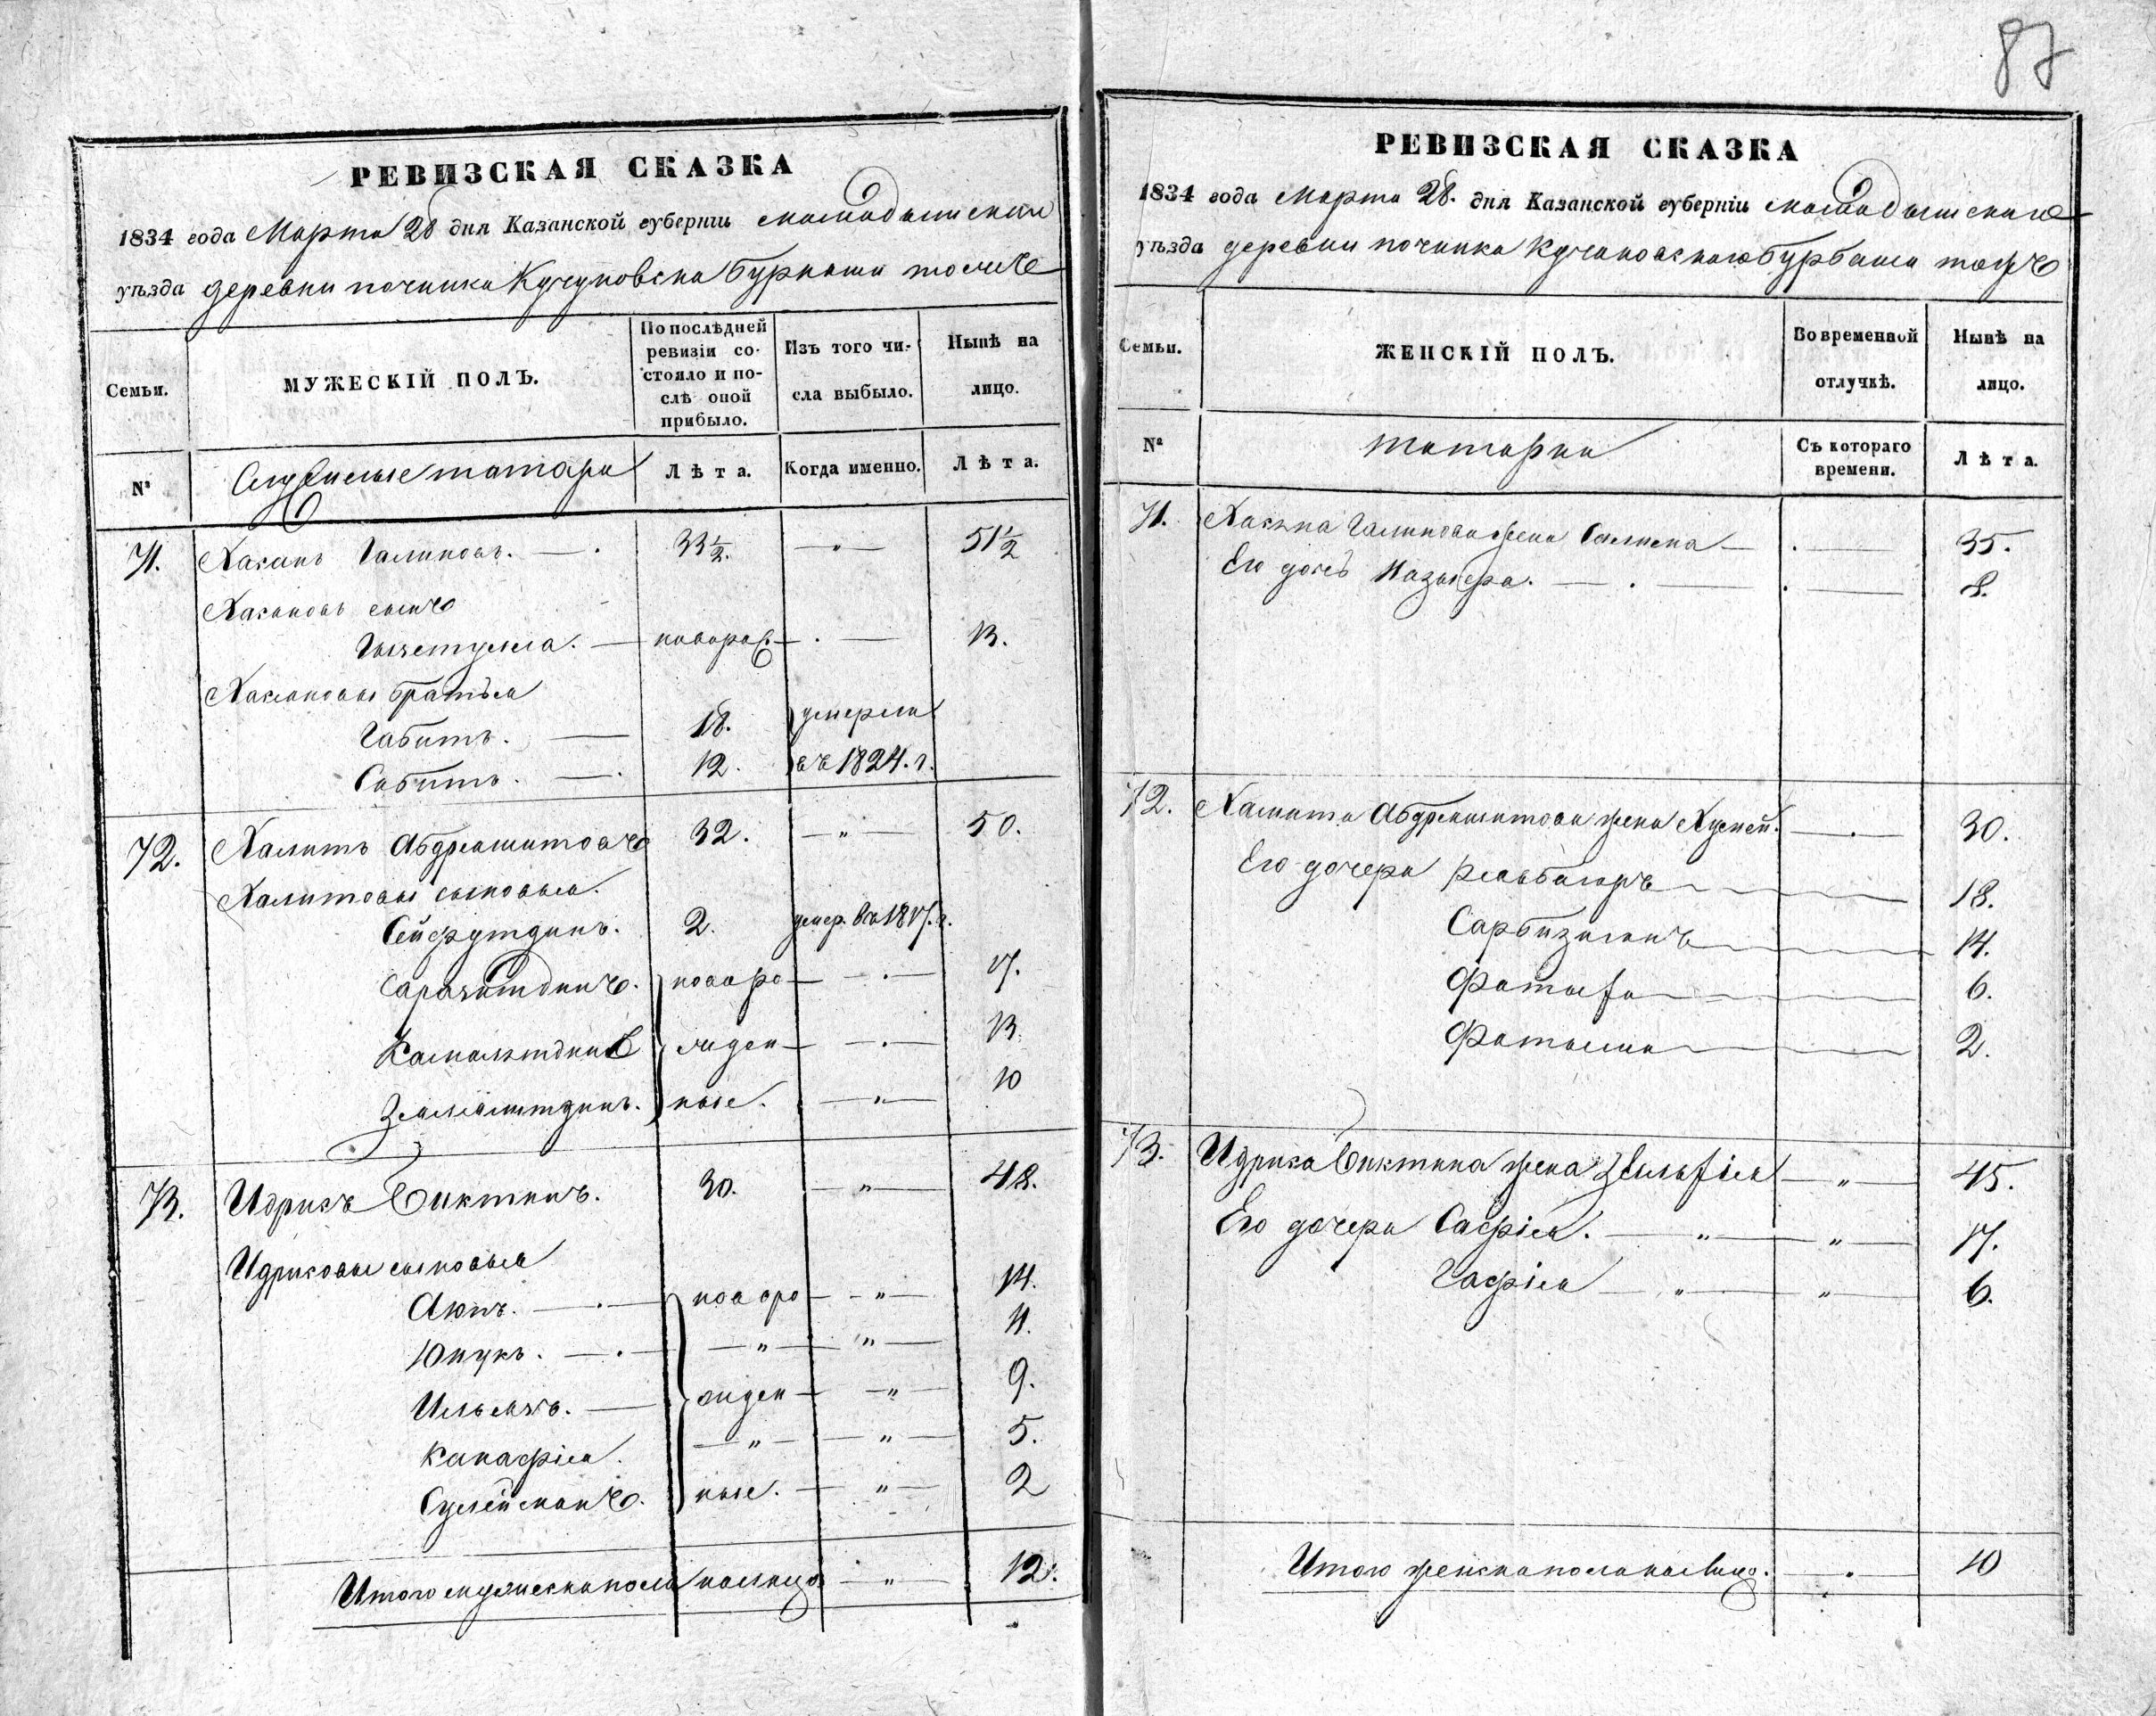 87
РЕВИЗСКАЯ СКАЗКА
1834 года Марта 28 дня Казанской губерніи мамадышскаго
уѣзда деревни починка Бурнаши тожъ
Семьи.
МУЖЕСКІЙ ПОЛЪ.
По послѣдней
ревизіи со-
стояло и по-
слѣ оной
прибыло.
Изъ того чи-
сла выбыло.
Нынѣ на
лицо.
№
Служилые татары
Лѣта.
Когда именно.
Лѣта.
71. Хасанъ Галиковъ. — 33½. — " — 51½
Хасановъ сынъ
новорож. — 13.
Хасановы братья
Габитъ. — 18. умерли
Сабитъ. — 12. въ 1824. г.
72. Халитъ Абдрашитовъ 32. — " — 50.
Халитовы сыновья.
Сейфутдинъ. 2. умер. въ 1817. г.
новоро — 17.
Камалетдинъ жден — 13.
ные. — " — 10
73. Идрисъ Биктинъ. 30. — " — 48.
Идрисовы сыновья
Аюпъ. — новоро — " — 14.
Юнусъ. — " — " — 11.
Ильясъ. — жден — " — 9.
Канафія. — " — " — 5.
Сулейманъ. ные. — " — 2
Итого мужеска пола на лицо — " — 12.
РЕВИЗСКАЯ СКАЗКА
1834 года Марта 28. дня Казанской губерніи мамадышскаго
уѣзда деревни починка Бурбаши тожъ
Семьи.
ЖЕНСКІЙ ПОЛЪ.
Во временной
отлучкѣ.
Нынѣ на
лицо.
№
татарки
Съ котораго
времени.
Лѣта.
71. Хасана Галикова жена Салима — 35.
Его дочь — 8.
72. Халита Абдрашитова жена — 30.
Его дочери — 18.
— 14.
— 6.
Фатыма — 2.
73. Идриса Биктина жена — " — 45.
Его дочери Сафія. — " — " — 17.
Гафія — " — " — 6.
Итого женска пола на лицо. — 10